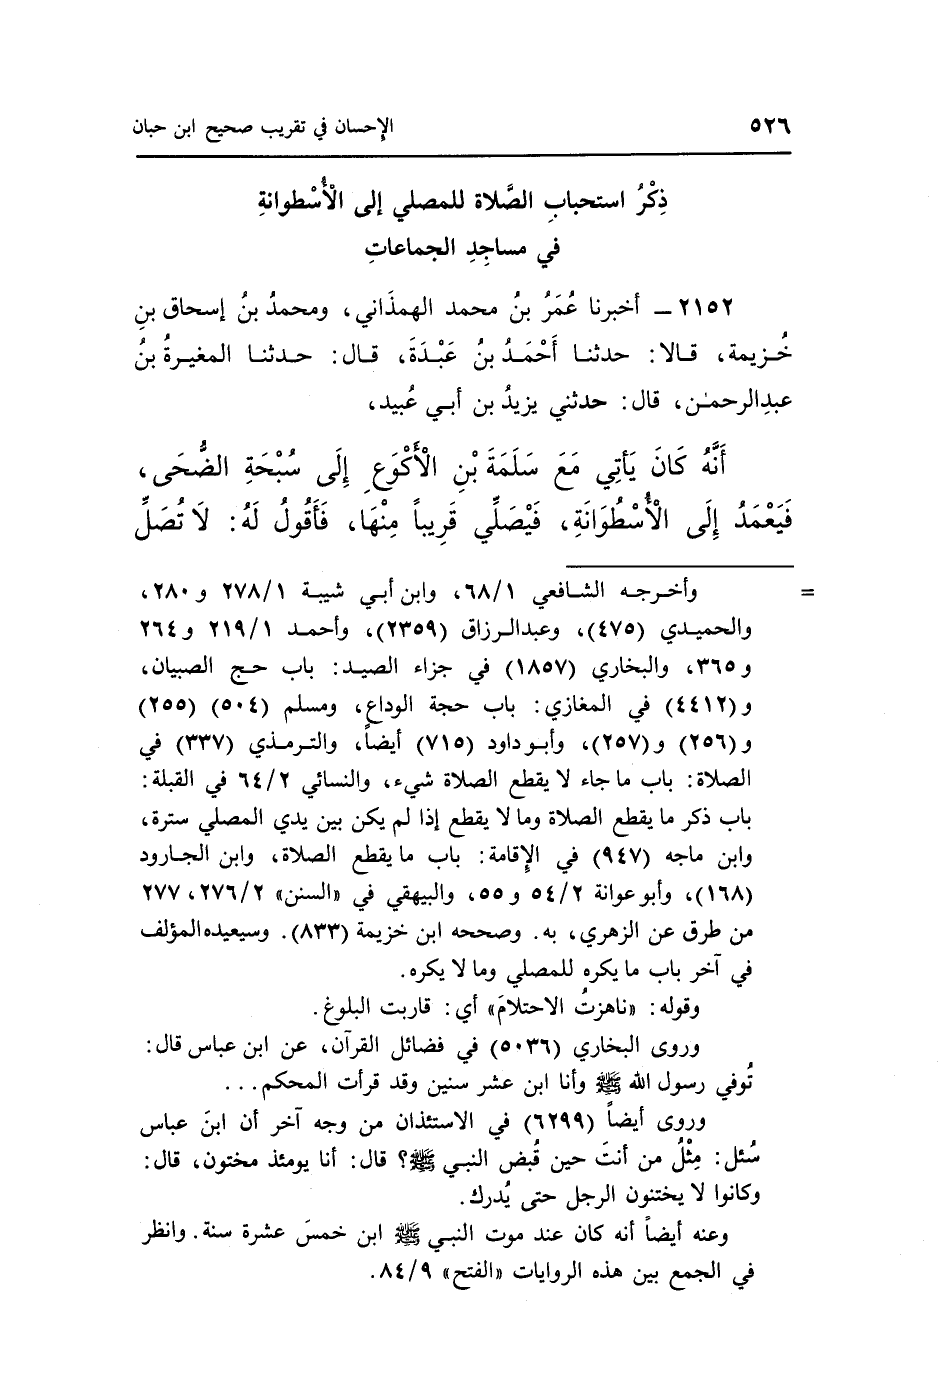 ٥٢٦ الإحسان في تقريب صحيح ابن حبان
ذِكْرُ استحبابِ الصَّلاة للمصلي إلى الأُسْطوانةِ
في مساجِدِ الجماعاتِ
٢١٥٢ ـ أخبرنا عُمَرُ بنُ محمد الهمذَاني، ومحمدُ بنُ إسحاق بنِ
خُزيمة، قالا: حدثنا أَحْمَدُ بنُ عَبْدَةَ، قال: حدثنا المغيرةُ بنُ
عبدِالرحمٰن، قال: حدثني يزيدُ بن أبي عُبيد،
أَنَّهُ كَانَ يَأتِي مَعَ سَلَمَةَ بْنِ الأَكْوَعِ إِلَى سُبْحَةِ الضُّحَى،
فَيَعْمَدُ إِلَى الأُسْطُوَانَةِ، فَيْصَلِّي قَرِيباً مِنْهَا، فَأَقُولُ لَهُ: لَا تُصَلِّ
= وأخرجه الشافعي ٦٨/١، وابن أبي شيبة ٢٧٨/١ و٢٨٠،
والحميدي (٤٧٥)، وعبدالرزاق (٢٣٥٩)، وأحمد ٢١٩/١ و٢٦٤
و٣٦٥، والبخاري (١٨٥٧) في جزاء الصيد: باب حج الصبيان،
و(٤٤١٢) في المغازي: باب حجة الوداع، ومسلم (٥٠٤) (٢٥٥)
و(٢٥٦) و(٢٥٧)، وأبو داود (٧١٥) أيضاً، والترمذي (٣٣٧) في
الصلاة: باب ما جاء لا يقطع الصلاة شيء، والنسائي ٦٤/٢ في القبلة:
باب ذكر ما يقطع الصلاة وما لا يقطع إذا لم يكن بين يدي المصلي سترة،
وابن ماجه (٩٤٧) في الإقامة: باب ما يقطع الصلاة، وابن الجارود
(١٦٨)، وأبو عوانة ٥٤/٢ و٥٥، والبيهقي في «السنن» ٢٧٦/٢، ٢٧٧
من طرق عن الزهري، به. وصححه ابن خزيمة (٨٣٣). وسيعيده المؤلف
في آخر باب ما يكره للمصلي وما لا يكره.
وقوله: «ناهزتُ الاحتلامَ» أي: قاربت البلوغ.
وروى البخاري (٥٠٣٦) في فضائل القرآن، عن ابن عباس قال:
تُوفي رسول الله ﷺ وأنا ابن عشر سنين وقد قرأت المحكم...
وروى أيضاً (٦٢٩٩) في الاستئذان من وجه آخر أن ابنَ عباس
سُئل: مِثْلُ من أنتَ حين قُبض النبي ﷺ؟ قال: أنا يومئذ مختون، قال:
وكانوا لا يختنون الرجل حتى يُدرك.
وعنه أيضاً أنه كان عند موت النبي ﷺ ابن خمسَ عشرة سنة. وانظر
في الجمع بين هذه الروايات «الفتح» ٨٤/٩.